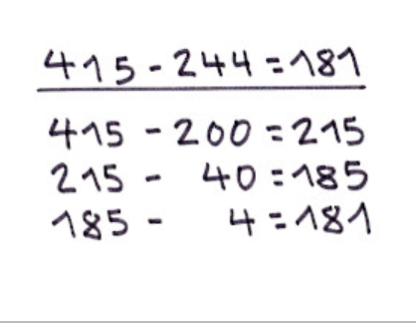 415 - 244 = 181
415 - 200 = 215
215 - 40 = 185
185 - 4 = 181